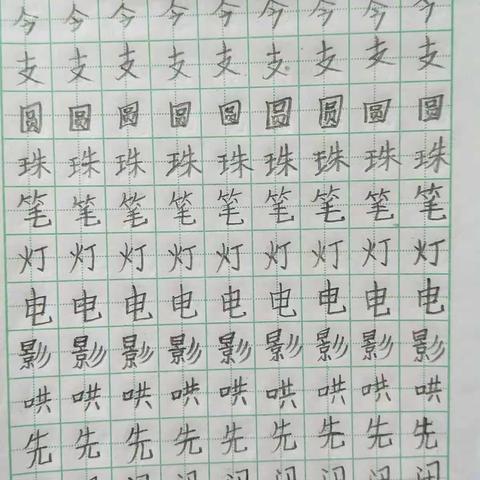 今今今今今今今今今
支支支支支支支支支
圆圆圆圆圆圆圆圆圆
珠珠珠珠珠珠珠珠珠
笔笔笔笔笔笔笔笔笔
灯灯灯灯灯灯灯灯灯
电电电电电电电电电
影影影影影影影影影
哄哄哄哄哄哄哄哄哄
先先先先先先先先先